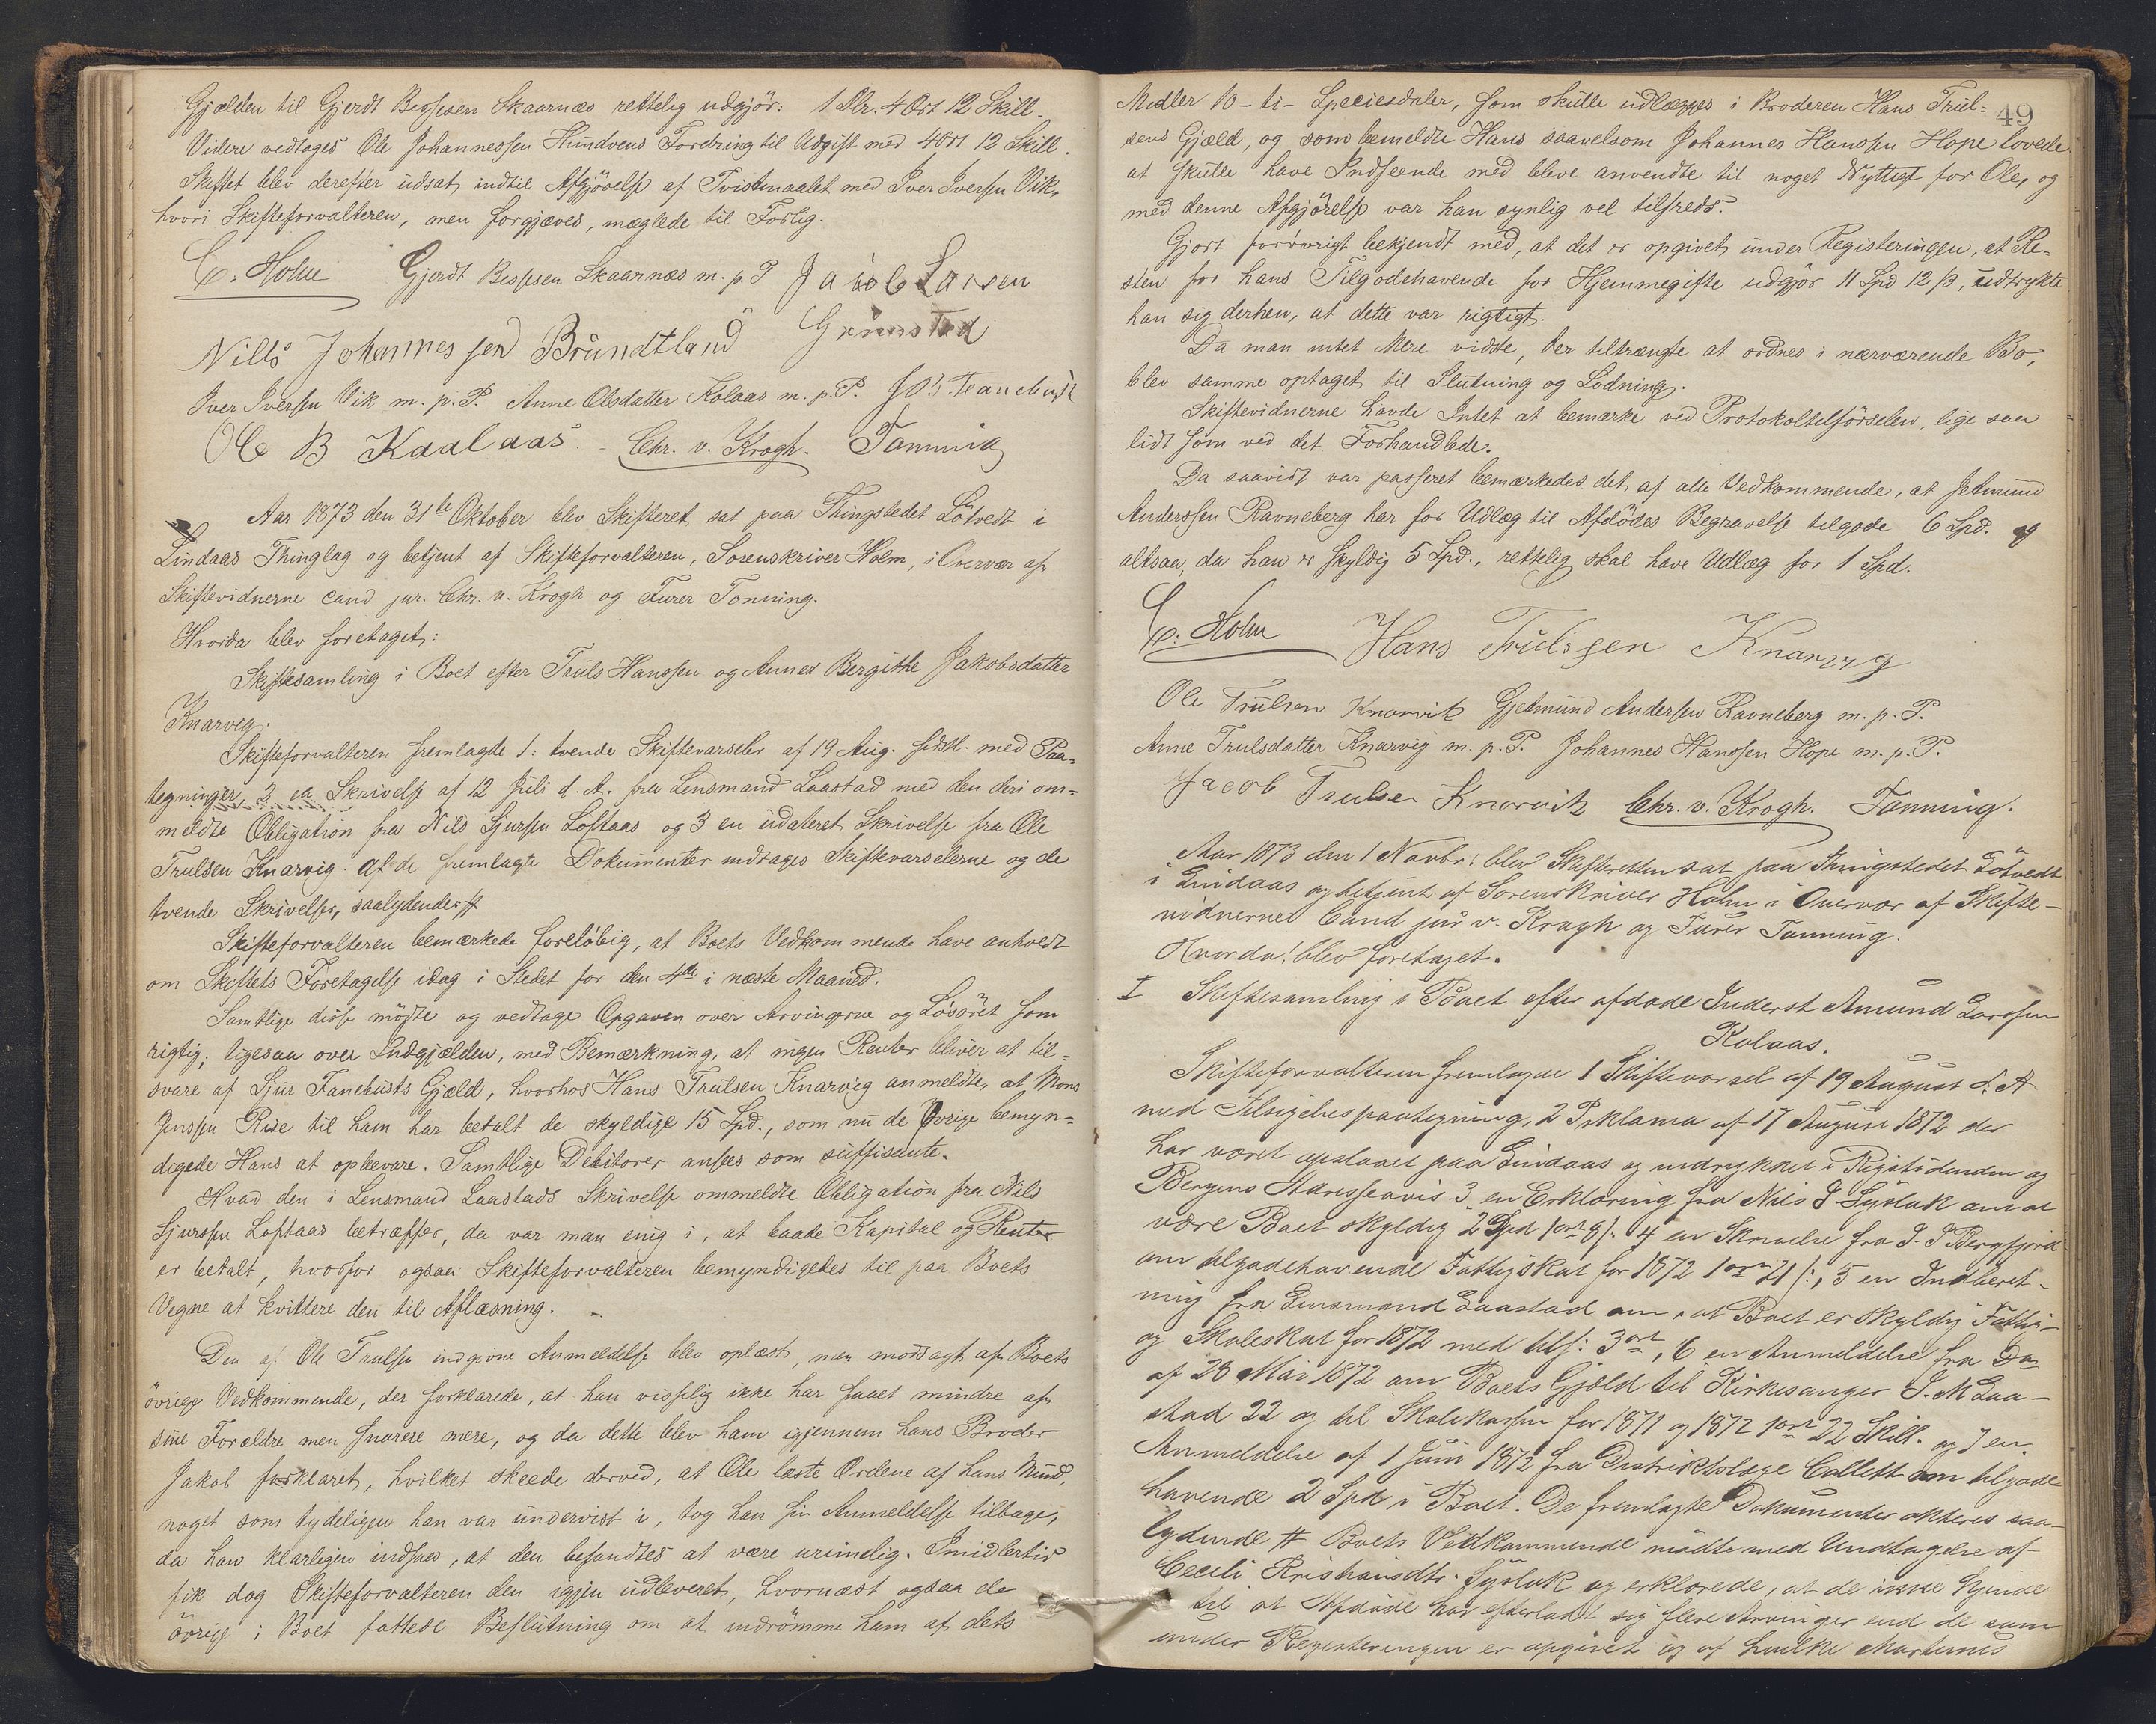 Gjælden til Gjerdt Bessesen Skaarnæs rettelig udgjör: 1 Dlr. 4 Ort 12 Skill.
Videre vedtages Ole Johannessen Hundvens Fordring til Udgift med 4 Ort 12 Skill.
Skiftet blev derefter udsat indtil Afgjörelse af Tvistemaalet med Iver Iversen Vik,
hvori Skifteforvalteren, men forgjæves, mæglede til Forlig.
C. Holm Gjerdt Bessesen Skaarnæs m. p. P Jacob Larsen
Grimstad
Nills Johannessen Brundtland
Iver Iversen Vik m. p. P. Anne Olsdatter Kolaas m. p. P.
Ole B Kaalaas. Chr. v. Krogh. Tonning
Aar 1873 den 31te Oktober blev Skifteret sat paa Thingstedet Lötvedt i
Lindaas Thinglag og betjent af Skifteforvalteren, Sorenskriver Holm, i Overvær af
Skiftevidnerne cand jur. Chr. v. Krogh og Furer Tonning.
Hvorda blev foretaget:
Skiftesamling i Boet efter Truls Hanssen og Anna Bergithe Jakobsdatter
Knarvig.
Skifteforvalteren fremlagde 1: tvende Skiftevarseler af 19 Aug. sidstl. med Paa-
tegninger, 2 en Skrivelse af 12 Juli d. A. fra Lensmand Laastad med den deri om-
meldte Obligation fra Nils Sjursen Loftaas og 3 en udateret Skrivelse fra Ole
Trulsen Knarvig. Af de fremlagte Dokumenter indtages Skiftevarselerne og de
tvende Skrivelser, saalydende #
Skifteforvalteren bemærkede foreløbig, at Boets Vedkommende have anholdt
om Skiftets Foretagelse idag i Stedet for den 4de i næste Maaned.
Samtlige disse mødte og vedtage Opgaven over Arvingerne og Løsøret som
rigtig; ligesaa over Indgjælden, med Bemærkning, at ingen Renter bliver at til-
svare af Sjur Fanebusts Gjæld, hvorhos Hans Trulsen Knarvig anmeldte, at Mons
Jenssen Rise til ham har betalt de skyldige 15 Spd., som nu de Øvrige bemyn-
digede Hans at opbevare. Samtlige Debitorer ansees som suffisente.
Hvad den i Lensmand Laastads Skrivelse ommeldte Obligation fra Nils
Sjurssen Loftaas betræffer, da var man enig i, at baade Kapital og Renter
er betalt, hvorfor ogsaa Skifteforvalteren bemyndigedes til paa Boets
Vegne at kvittere den til Aflæsning.
Den af Ole Trulsen indgivne Anmeldelse blev oplæst, men modsagt af Boets
övrige Vedkommende, der forklarede, at han visselig ikke har faaet mindre af
sine Forældre men snarere mere, og da dette blev ham igjennem hans Broder
Jakob forklaret, hvilket skeede derved, at Ole læste Ordene af hans Mund,
noget som tydeligen han var undervist i, tog han sin Anmeldelse tilbage,
da han klarligen indsaa, at den befandtes at være urimelig. Imidlertid
fik dog Skifteforvalteren den igjen udleveret, hvornæst ogsaa de
övrige i Boet fattede Beslutning om at indrömme ham af dets
49
Midler 10 - ti - Speciesdaler, som skulle udlægges i Broderen Hans Trul-
sens Gjæld, og som bemeldte Hans saavelsom Johannes Hanssen Hope lovede
at skulle have Indseende med bleve anvendte til noget Nyttigt for Ole, og
med denne Afgjörelse var han synlig vel tilfreds.
Gjort forøvrigt bekjendt med, at det er opgivet under Registeringen, at Re-
sten for hans Tilgodehavende for Hjemmegifte udgjør 11 Spd 12 ß, udtrykte
han sig derhen, at dette var rigtigt.
Da man intet Mere vidste, der tiltrængte at ordnes i nærværende Bo,
blev samme optaget til Slutning og Lodning.
Skiftevidnerne havde Intet at bemærke ved Protokoltilførselen, lige saa
lidt som ved det Forhandlede.
Da saavidt var passeret bemærkedes det af alle Vedkommende, at Jetmund
Anderssen Ravneberg har for Udlæg til Afdødes Begravelse tilgode 6 Spd. og
altsaa, da han er skyldig 5 Spd., rettelig skal have Udlæg for 1 Spd.
C. Holm Hans Trulssen Knarvig
Ole Trulsen Knarvik Gjetmund Andersen Ravneberg m. p. P.
Anne Trulsdatter Knarvig m. p. P. Johannes Hanssen Hope m. p. P.
Jacob Trulsen Knarvik Chr. v. Krogh. Tonning.
Aar 1873 den 1 Novbr. blev Skifteretten sat paa Thingstedet Lötvedt
i Lindaas og betjent af Sorenskriver Holm i Overvær af Skifte-
vidnerne Cand jur v. Krogh og Furer Tonning.
Hvorda blev foretaget.
I Skiftesamling i Boet efter afdøde Inderst Amund Larssen
Kolaas.
Skifteforvalteren fremlagde 1 Skiftevarsel af 19 August d. A
med Tilsigelsespaategning, 2 Proklama af 17 August 1872 der
har været opslaaet paa Lindaas og indrykket i Rigstidenden og
Bergens Adresseavis. 3 en Erklæring fra Nils J Sysluk om at
være Boet skyldig 2 Spd 1 ort 8 ß. 4 en Skrivelse fra J. J Bergfjord
om tilgodehavende Fattigskat for 1872 1 ort 21 ß, 5 en Indberet-
ning fra Lensmand Laastad om, at Boet er skyldig Fattig-
og Skoleskat for 1872 med tils: 3 ort, 6 en Anmeldelse fra Do
af 28 Mai 1872 om Boets Gjæld til Kirkesanger J. M Laa-
stad 22 og til Skolekassen for 1871 og 1872 1 ort 22 Skill. og 7 en
Anmeldelse af 1 Juni 1872 fra Distriktslæge Collett om tilgode
havende 2 Spd i Boet. De fremlagte Dokumenter akteres saa-
lydende # Boets Vedkommende mødte med Undtagelse af
Cecili Kristiansdtr. Sysluk og erklærede, at de ikke kjende
til at Afdøde har efterladt sig flere Arvinger end de som
under Registeringen er opgivet og af hvilke Martinus